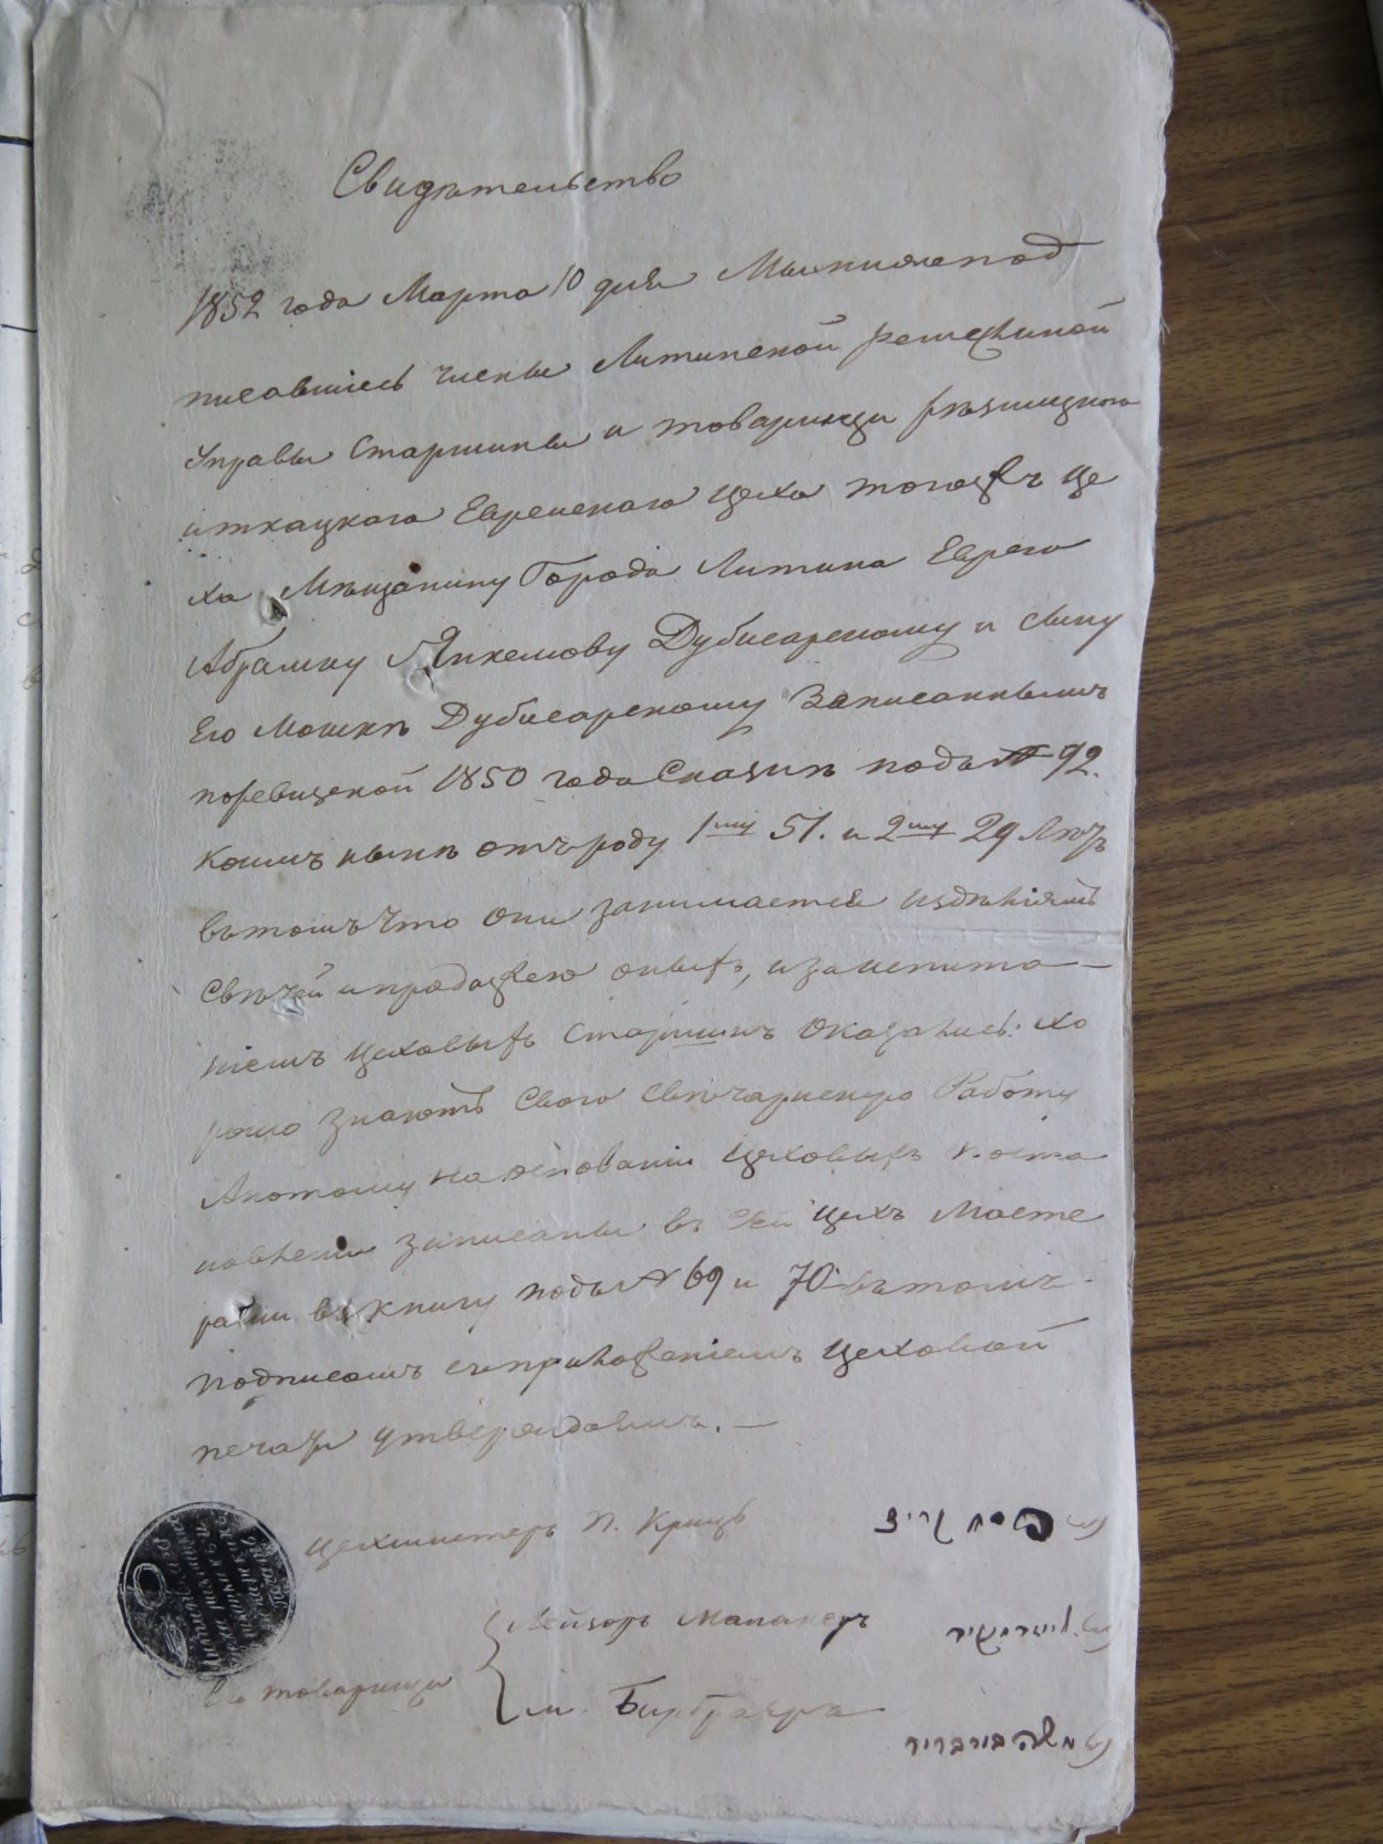 Свидѣтельство
1852 года Марта 10 дня Мы нижепод
писавшіесь члены Литинской ремесленой
Управы Старшины и товарищи рѣзницкого
и ткацкаго Еврейскаго Цеха тогожъ Це
ха Мѣщанину Города Литина Еврею
Абрамку Янкелюву Дубисарскому и сыну
Его Мошкѣ Дубисарскому Записаннымъ
поревизской 1850 года Сказкѣ подъ № 92.
коимъ нынѣ отъ роду 1му 51. и 2му 29 Лѣтъ
въ томъ что они занимается издѣліямъ
Свѣчей и продажею оныхъ, и за испита
ніемъ Цеховыхъ Старшинъ Оказались: хо
рошо знаютъ Свою Свѣчарискую Работу
А потому на основаніи Цеховыхъ поста
новлени записаны въ сей Цехъ Масте
рами въ книгу подъ № 69 и 70 въ томъ
подписомъ съ приложеніемъ Цеховой
печати утверждаимъ. —
Цехмистеръ П. Крицъ
פסח קריץ
Его товарищи
Лейзоръ
м. Бирбраеръ
משה בירברייר